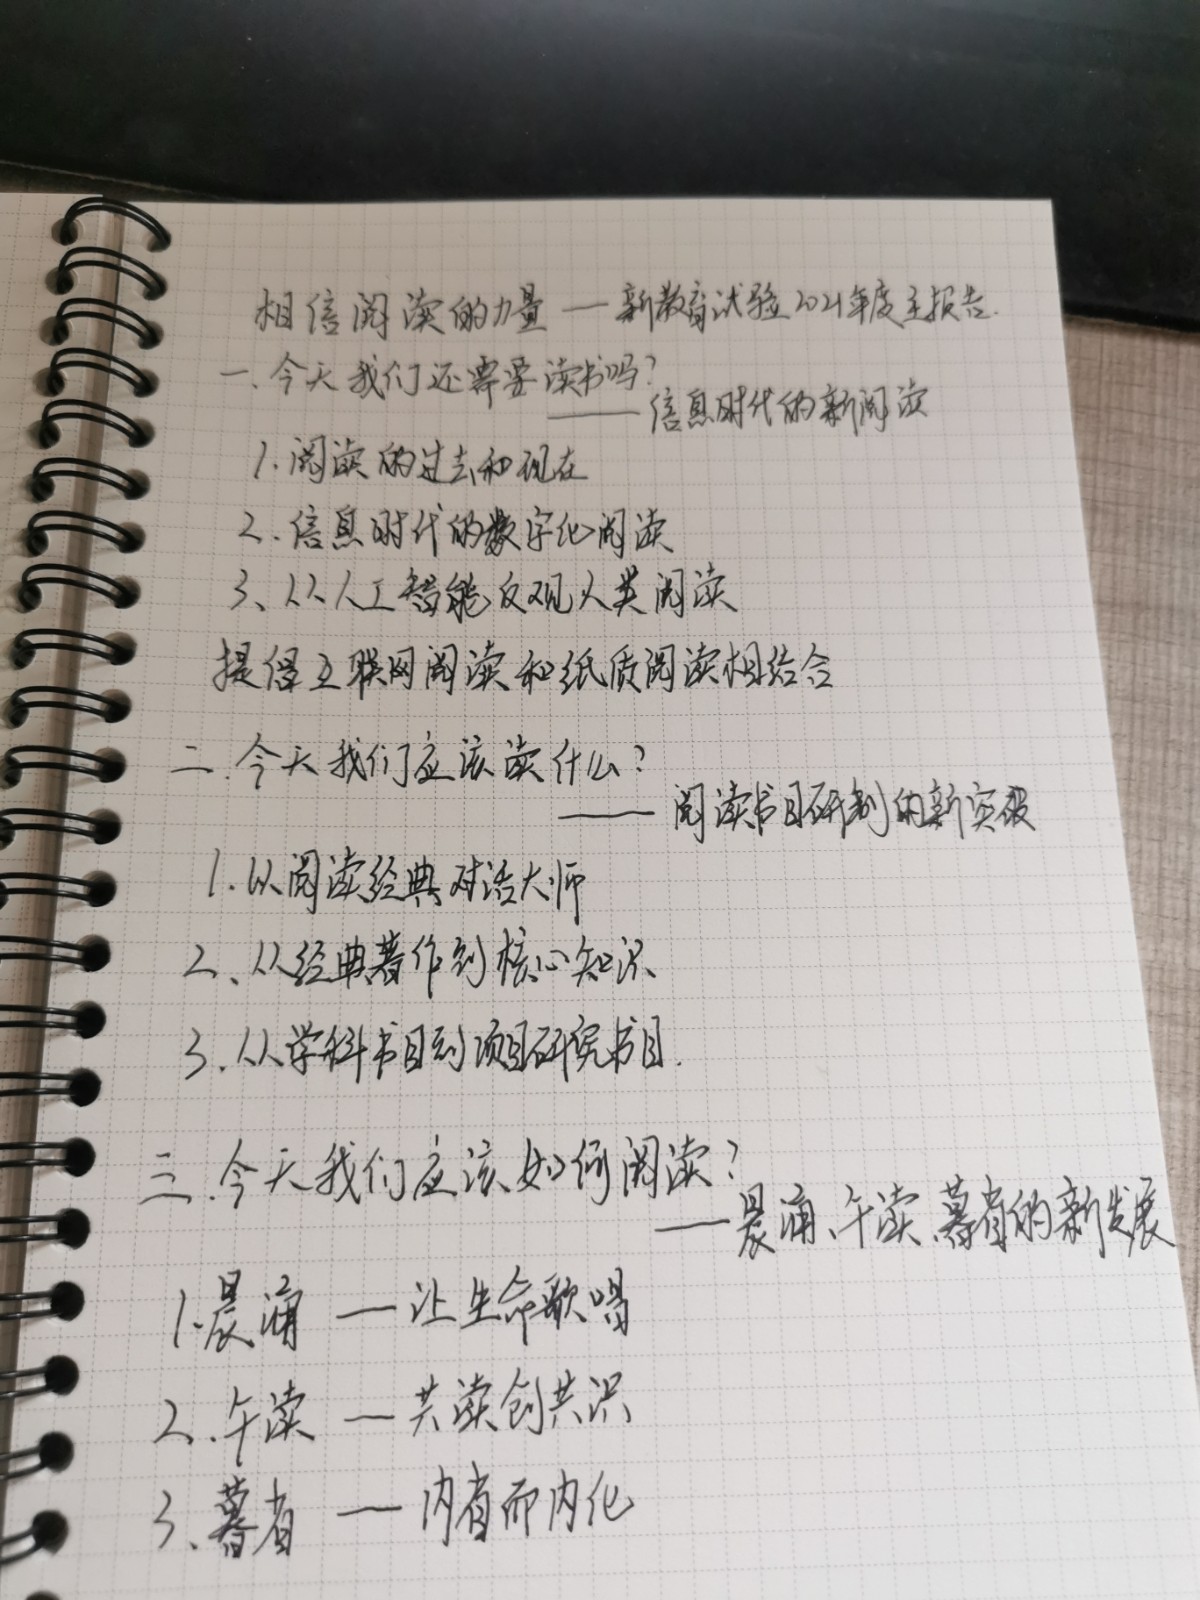 相信阅读的力量——新教育试验2021年度主报告.
一.今天我们还需要读书吗?
——信息时代的新阅读
1.阅读的过去和现在
2.信息时代的数字化阅读
3、从人工智能反观人类阅读
提倡互联网阅读和纸质阅读相结合
二.今天我们应该读什么?
——阅读书目研制的新突破
1.从阅读经典对话大师
2、从经典著作到核心知识
3.从学科书目到项目研究书目.
三.今天我们应该如何阅读?
——晨诵、午读、暮省的新发展
1.晨诵——让生命歌唱
2.午读——共读创共识
3、暮省——内省而内化